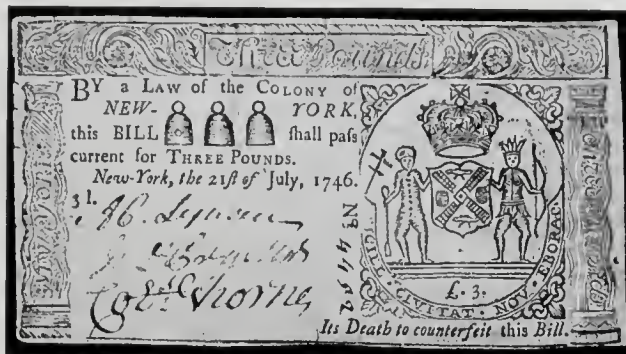 Three Pounds
BY a LAW of the COLONY of
NEW- YORK,
this BILL shall pass
current for THREE POUNDS.
New-York, the 21st of July, 1746.
3 l.
Nº 4452
£. 3.
SIGILL. CIVITAT. NOV. EBORAC.
Its Death to counterfeit this Bill.